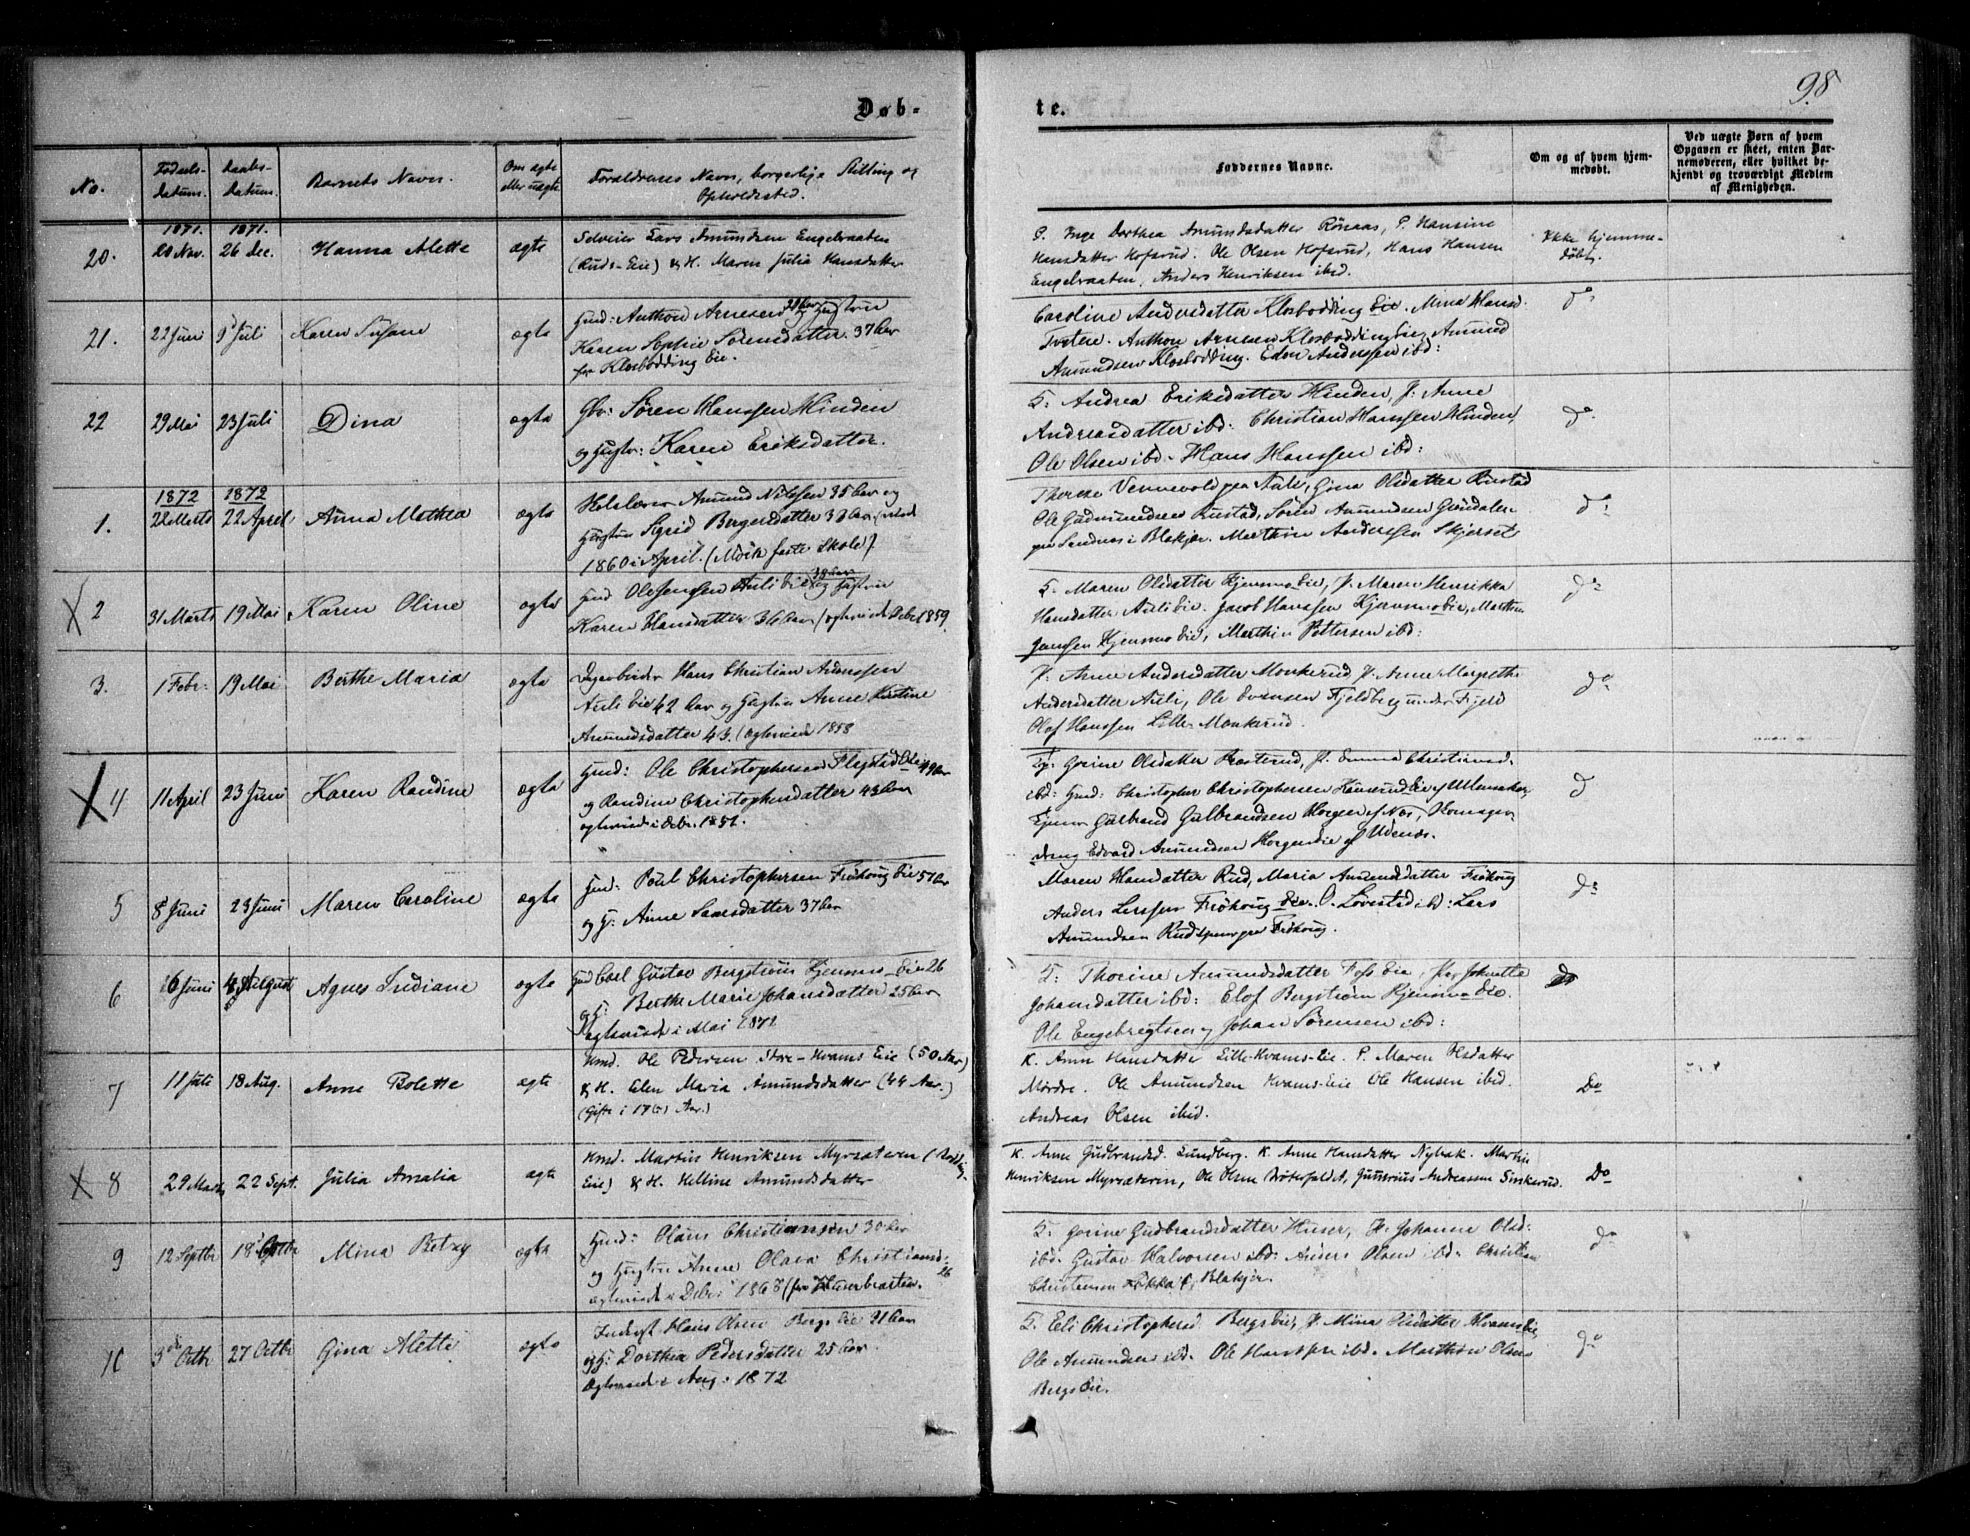 98
Døb-
te.
No.
Fødsels-
datum.
Daabs-
datum.
Barnets Navn.
Om ægte
eller uægte
Forældrenes Navn, borgerlige Stilling og
Opholdssted.
Faddernes Navne.
Om og af hvem hjem-
medøbt.
Ved uægte Børn af hvem
Opgaven er skeet, enten Bar-
nemoderen, eller hvilket be-
kjendt og troværdigt Medlem
af Menigheden.
1871. 1871.
20. 20 Nov. 26 Dec. Hanna Alette ægte
Selveier Lars Amundsen Engelraaten
(Ruds-Eie) & H. Maren Julia Hansdatter
P. Inge Dorthea Amundsdatter Rönaas, P. Hansine
Hansdatter Hofsrud. Ole Olsen Hofsrud, Hans Hansen
Engelraaten, Anders Henriksen ibid.
Ikke hjemme-
døbt.
21. 22 Juni 9 Juli Karen Susane ægte
Hmd: Anthon Arnesen og Hustru
Karen Sophie Sörensdatter. 37 Aar
fra Klosbødding Eie.
Caroline Andersdatter Klosbødding Eie. Mina Hansd.
Tvetene. Anthon Arnesen Klosbødding Eie, Amund
Amundsen Klosbødding. Anderssen ibd:
do
22 29 Mai 23 Juli Dina ægte
Gbr: Sören Hanssen Hinden
og Hustr: Karen Eriksdatter.
K: Andrea Eriksdatter Hinden, P: Anne
Andreasdatter ibd: Christian Hanssen Hinden,
Ole Olsen ibd. Hans Hanssen ibd:
do
1872 1872
1. 22 April Anna Mathea ægte
Amund Nilssen 35 Aar og
Hustru Sigrid Bergersdatter
1860 i April.
Vennevold paa Auli, Gina Olsdatter Rustad
Ole Gudmundsen Rustad, Sören Amundsen
paa Sandnes i Blakjer. Marthin Anderssen
do
X 2 31 Marts 19 Mai Karen Oline ægte
Hmd Ole Jensen Auli Eie og Hustru
Karen Hansdatter 36 Aar (ægteviede Debr 1859.
K. Maren Olsdatter Kjensmo Eie, P. Maren Henrikka
Hansdatter Auli Eie. Jacob Hanssen Kjensmo Eie,
Jenssen Kjensmo Eie, Marthin Pettersen ibd:
do
3. 1 Febr: 19 Mai Berthe Maria ægte
Hans Christian Anderssen
Auli Eie 42 Aar og Hustru Anne Kirstine
Amundsdatter 43. (ægteviede 1858
P. Anne Andersdatter Monkerud P. Anne Margrethe
Andersdatter Auli, Ole Svensen Fjeldberg under Fjeld
Olaf Hanssen Lille Monkerud.
do
X 4 11 April 23 Juni Karen Randine ægte
Hmd: Ole Christophersen Flegstad Eie 49 Aar
og Randine Christophersdatter 43 Aar
ægteviede i Debr. 1852.
Gorine Olsdatter, P. Emma Christiansd.
ibd: Hmd: Christopher Christophersen
Gulbrand Gulbrandsen Horgen af Næs,
dreng Edvard Amundsen Horgen Eie af Udenæs.
do
5 8 Juni 23 Juni Maren Caroline ægte
Hmd: Poul Christophersen Frökoug Eie 57 Aar
og H: Anne Larsdatter 37 Aar
Maren Hansdatter Rud, Maria Amundsdatter Frökoug
Anders Larssen Frökoug Eie. O. Lövestad ibd: Lars
Amundsen Frökoug.
do
6 16 Juni 4 August Agnes Indiane ægte
Hmd Carl Gustav Bergström Kjensmo Eie 26
og H: Berthe Marie Johansdatter 25 Aar
ægteviede i Mai 1871
K: Thorine Amundsdatter Foss Eie, Johanssdatter ibd: Elof Bergström Kjensmo Eie.
Ole Engebregtsen og Johan Sörensen ibd:
do
7 11 Juli 18 Aug. Anne Bolette ægte
Hmd. Ole Pedersen Store-Kvams Eie (50 Aar)
& H. Elen Maria Amundsdatter (44 Aar.)
(Gifte i Aar.)
K. Anne Hansdatter Lille-Kvams-Eie. P. Maren Olsdatter
Mördre. Ole Amundsen Kvams-Eie Ole Hansen ibid.
Andreas Olsen ibid.
Do
X 8 29 Marts 22 Sept. Julia Amalia ægte
Hmd. Martin Henriksen Myrsæteren
Eie) & H. Helline Amundsdatter
K. Anne Gudbrandsd. Lundberg. K. Anne Hansdatter Nybak. Martin
Henriksen Myrsæteren, Ole Olsen, Andreassen
Do
9 12 Septbr 18 Octbr Mina Betzy ægte
Hmd: Olaus Christiansen 30 Aar
og Hustru Anne Olava Christiansd. 26
ægteviede i Debr: 1867
K. Gorine Gudbrandsdatter Huser, P. Johanne Olsd:
ibd. Gustav Halvorsen ibd: Anders Olsen ibd. Christian
Christensen i Blakjer.
do
10 3 Octbr 27 Octbr Gina Alette ægte
Hans Olsen Bergs Eie 31 Aar
og H: Dorthea Pedersdatter 25 Aar.
ægteviede i Aug: 1872
K. Eli Christophersd. Bergs Eie, P. Mina Kvams Eie,
Ole Amundsen ibd. Ole ibd. Marthin Olsen
Bergs Eie.
do